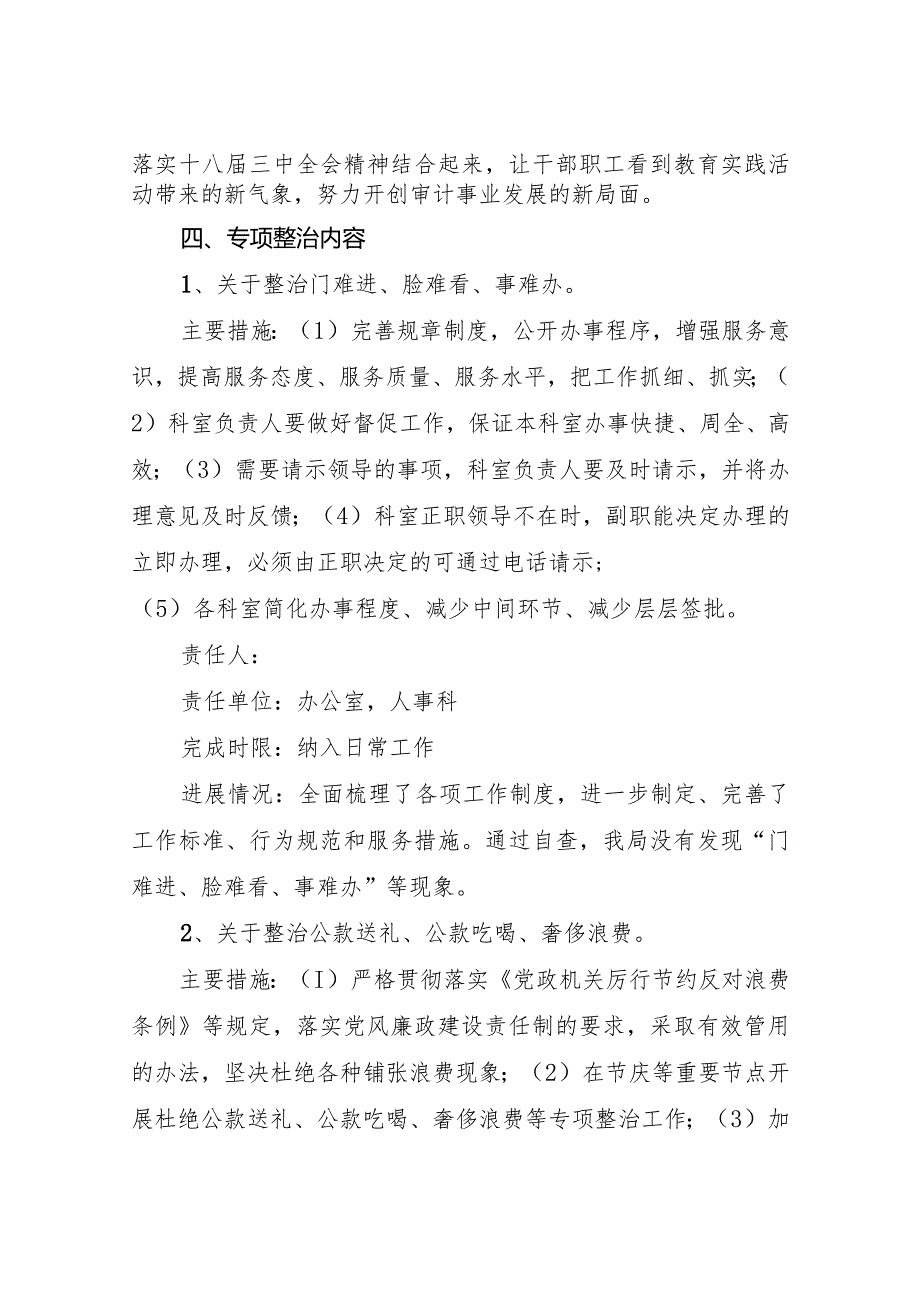 落实十八届三中全会精神结合起来，让干部职工看到教育实践活
动带来的新气象，努力开创审计事业发展的新局面。
四、专项整治内容
1、关于整治门难进、脸难看、事难办。
主要措施：（1）完善规章制度，公开办事程序，增强服务意
识，提高服务态度、服务质量、服务水平，把工作抓细、抓实；（
2）科室负责人要做好督促工作，保证本科室办事快捷、周全、高
效；（3）需要请示领导的事项，科室负责人要及时请示，并将办
理意见及时反馈；（4）科室正职领导不在时，副职能决定办理的
立即办理，必须由正职决定的可通过电话请示；
（5）各科室简化办事程度、减少中间环节、减少层层签批。
责任人：
责任单位：办公室，人事科
完成时限：纳入日常工作
进展情况：全面梳理了各项工作制度，进一步制定、完善了
工作标准、行为规范和服务措施。通过自查，我局没有发现“门
难进、脸难看、事难办”等现象。
2、关于整治公款送礼、公款吃喝、奢侈浪费。
主要措施：（I）严格贯彻落实《党政机关厉行节约反对浪费
条例》等规定，落实党风廉政建设责任制的要求，采取有效管用
的办法，坚决杜绝各种铺张浪费现象；（2）在节庆等重要节点开
展杜绝公款送礼、公款吃喝、奢侈浪费等专项整治工作；（3）加